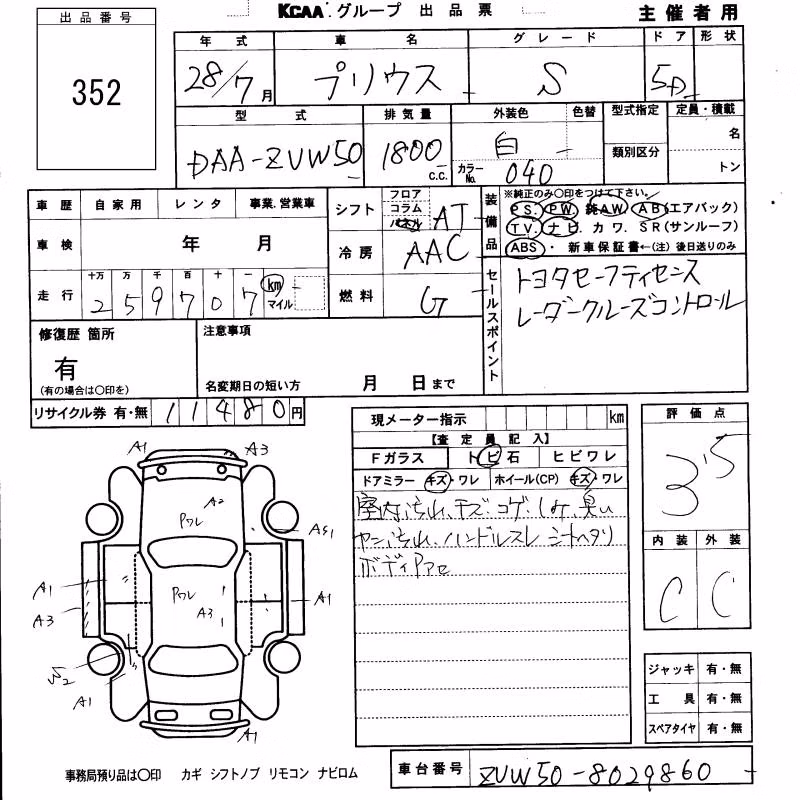 出品番号
352
KCAA グループ 出品票
主催者用
年式 車名 グレード ドア 形状
28/7月 プリウス S 5D
型式 排気量 外装色 色替 型式指定 定員・積載
DAA-ZVW50 1800 C.C. 白 名
カラーNo. 040 類別区分 トン
車歴 自家用 レンタ 事業.営業車
車検 年 月
走行 十万 万 千 百 十 一
2 5 9 7 0 7 km マイル
シフト フロア コラム パネル AT
冷房 AAC
燃料 G
装備品
※純正のみ〇印をつけて下さい。
PS. PW. 純AW. AB(エアバック)
TV. ナビ. カワ. SR(サンルーフ)
ABS・新車保証書←(注)後日送りのみ
セールスポイント
トヨタセーフティセンス
レーダークルーズコントロール
修復歴 箇所
有
(有の場合は〇印を)
注意事項
名変期日の短い方 月 日まで
リサイクル券 有・無 11480円
現メーター指示 km
【査定員記入】
Fガラス トビ石 ヒビワレ
ドアミラー キズ・ワレ ホイール(CP) キズ・ワレ
室内汚れ、キズ・コゲ・しみ、臭い
ヤニ汚れ、ハンドルスレ シートヘタリ
ボディPアセ
評価点
3.5
内装 外装
C C
ジャッキ 有・無
工具 有・無
スペアタイヤ 有・無
A1 A3
A2
Pワレ
AS1
A1
A3
Pワレ
A3
A1
S2
A1
A1
事務局預り品は〇印 カギ シフトノブ リモコン ナビロム
車台番号 ZVW50-8029860